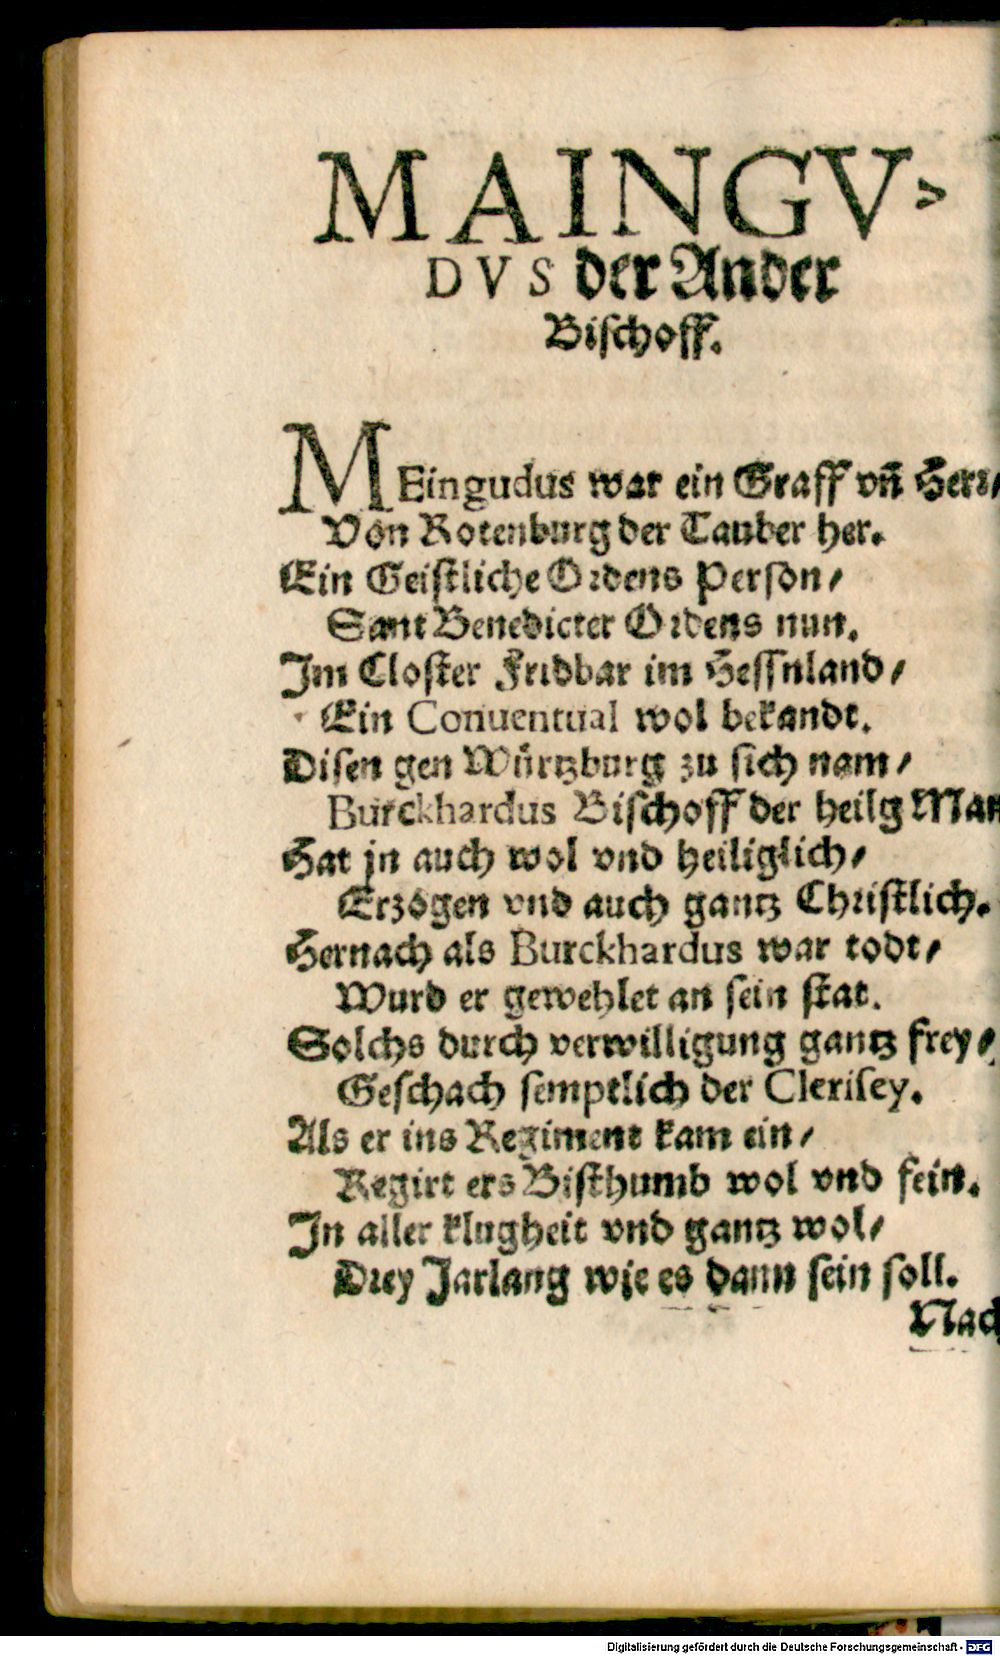 MAINGV-
DVS der Ander
Bischoff.
MEingudus war ein Graff vn̄ Herr/
Von Rotenburg der Tauber her.
Ein Geistliche Ordens Person/
Sant Benedicter Ordens nun.
Im Closter Fridbar im Hessnland/
Ein Conuentual wol bekandt.
Disen gen Würtzburg zu sich nam/
Burckhardus Bischoff der heilg Man
Hat jn auch wol vnd heiliglich/
Erzogen vnd auch gantz Christlich.
Hernach als Burckhardus war todt/
Wurd er gewehlet an sein stat.
Solchs durch verwilligung gantz frey/
Geschach semptlich der Clerisey.
Als er ins Regiment kam ein/
Regirt ers Bisthumb wol vnd fein.
In aller klugheit vnd gantz wol/
Drey Jarlang wie es dann sein soll.
Nach
Digitalisierung gefördert durch die Deutsche Forschungsgemeinschaft - DFG